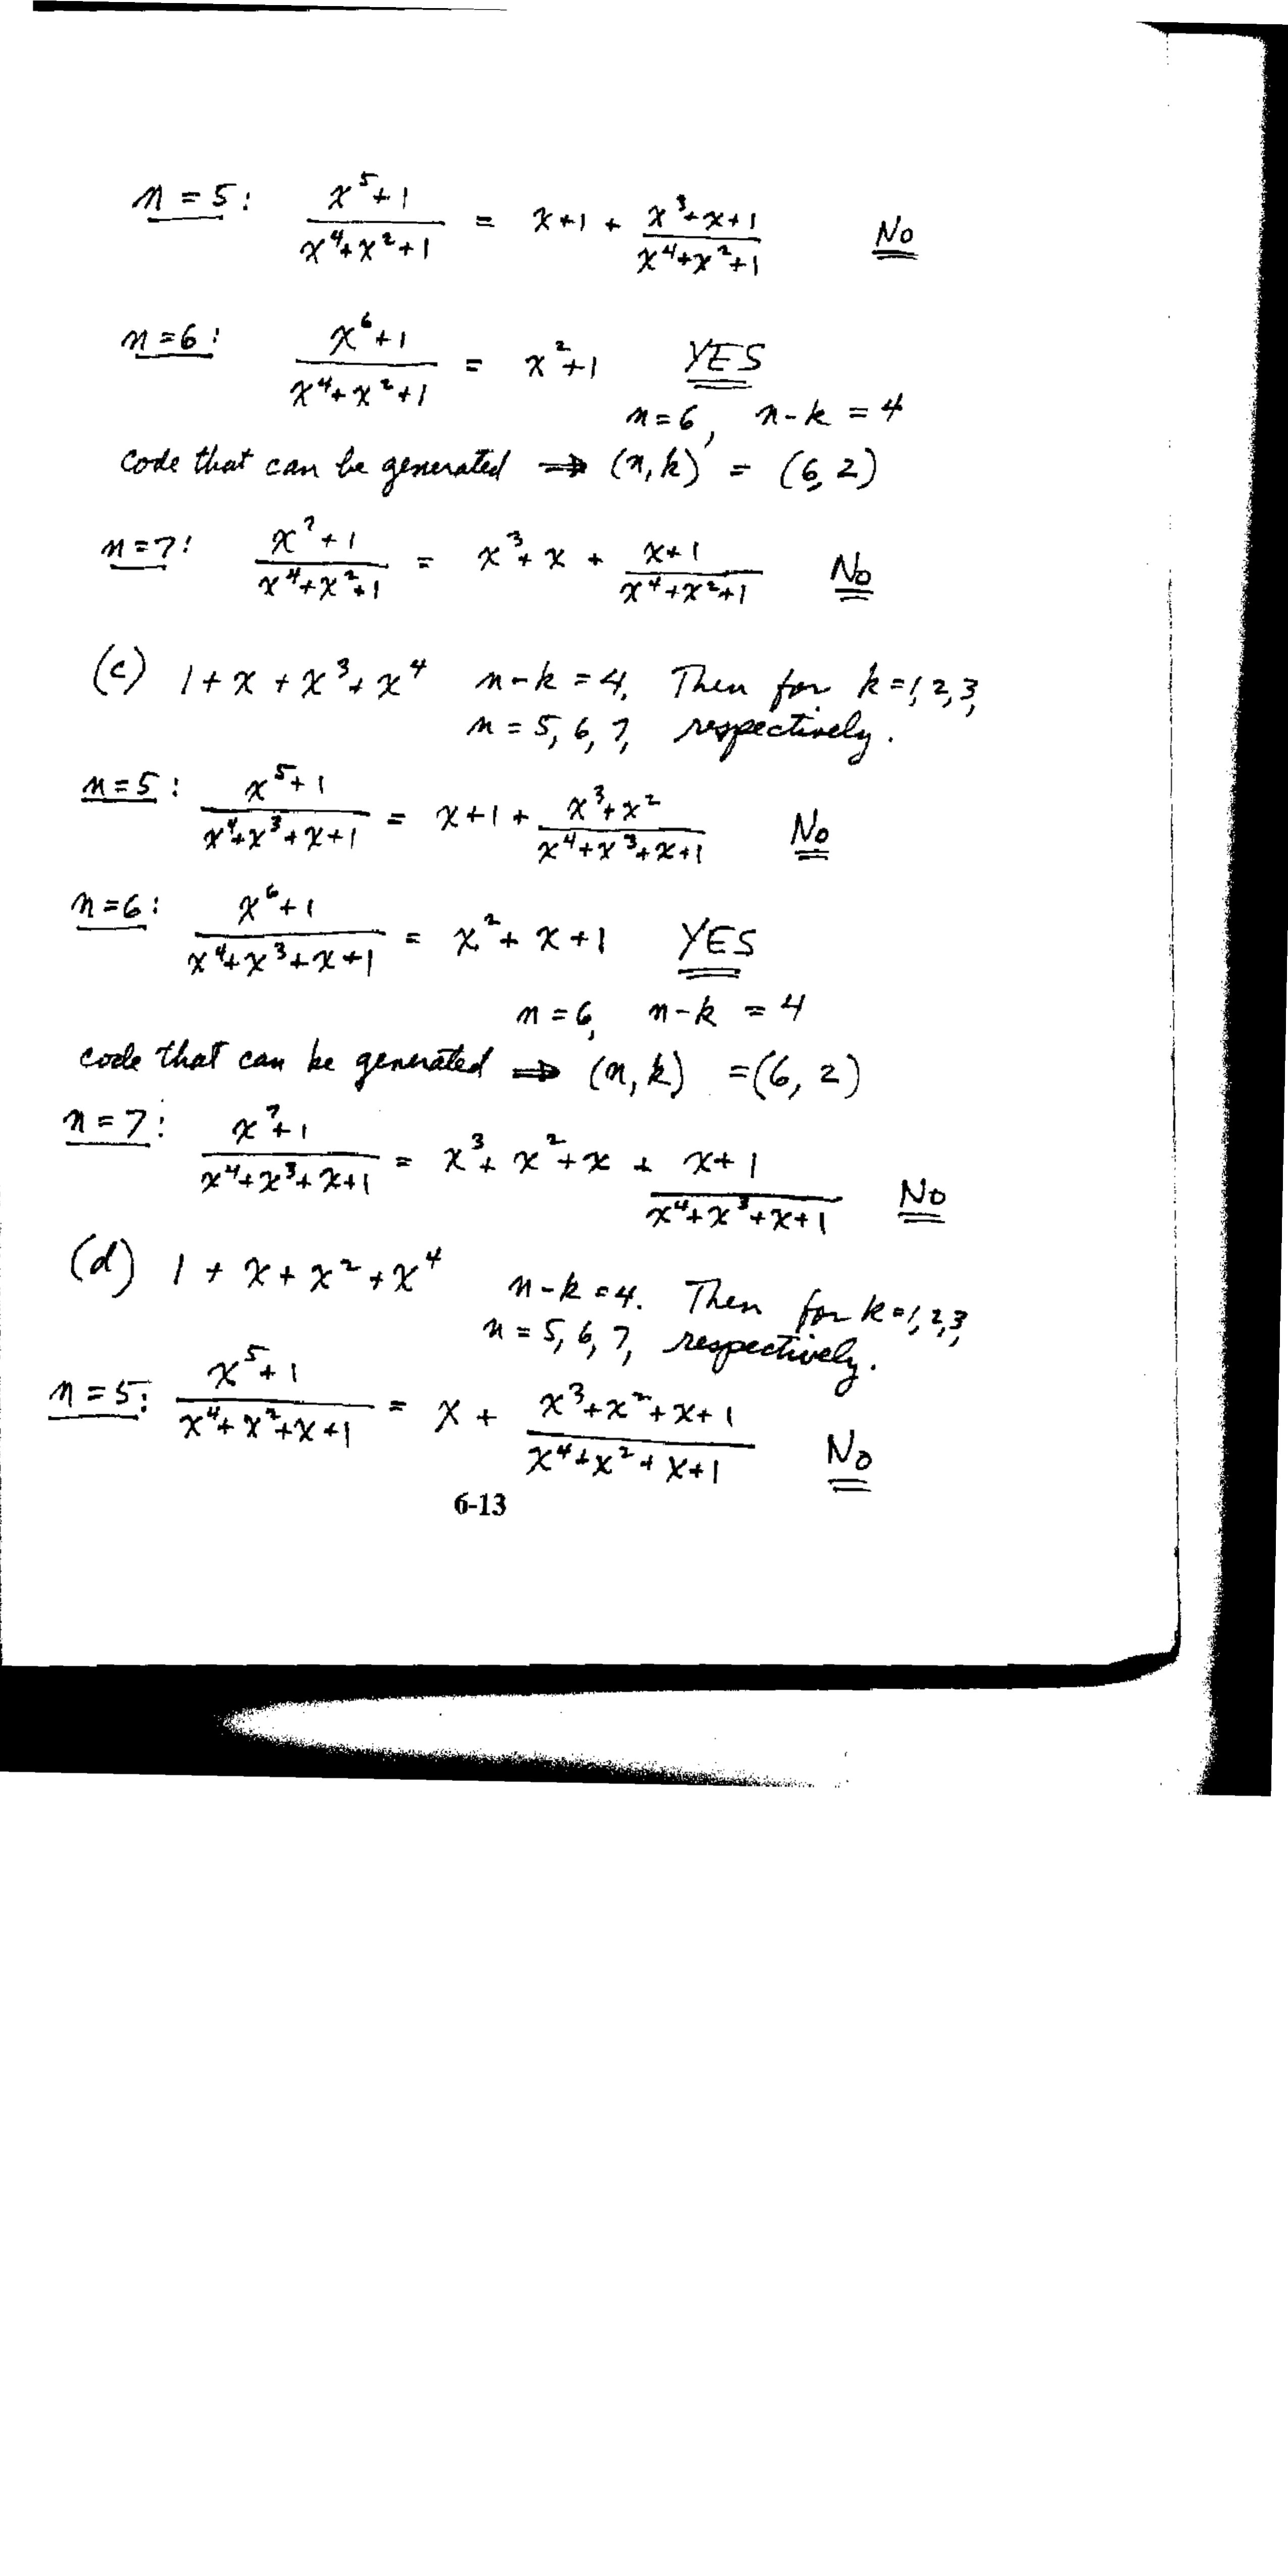 n = 5: (x^5+1)/(x^4+x^2+1) = x+1 + (x^3+x+1)/(x^4+x^2+1) No
n=6: (x^6+1)/(x^4+x^2+1) = x^2+1 YES
n=6, n-k = 4
code that can be generated ⇒ (n,k) = (6,2)
n=7: (x^7+1)/(x^4+x^2+1) = x^3+x + (x+1)/(x^4+x^2+1) No
(c) 1+x+x^3+x^4 n-k=4. Then for k=1,2,3,
n = 5, 6, 7, respectively.
n=5: (x^5+1)/(x^4+x^3+x+1) = x+1+ (x^3+x^2)/(x^4+x^3+x+1) No
n=6: (x^6+1)/(x^4+x^3+x+1) = x^2+x+1 YES
n=6, n-k = 4
code that can be generated ⇒ (n,k) =(6,2)
n=7: (x^7+1)/(x^4+x^3+x+1) = x^3+x^2+x + (x+1)/(x^4+x^3+x+1) No
(d) 1+x+x^2+x^4 n-k=4. Then for k=1,2,3,
n = 5, 6, 7, respectively.
n=5: (x^5+1)/(x^4+x^2+x+1) = x + (x^3+x^2+x+1)/(x^4+x^2+x+1) No
6-13